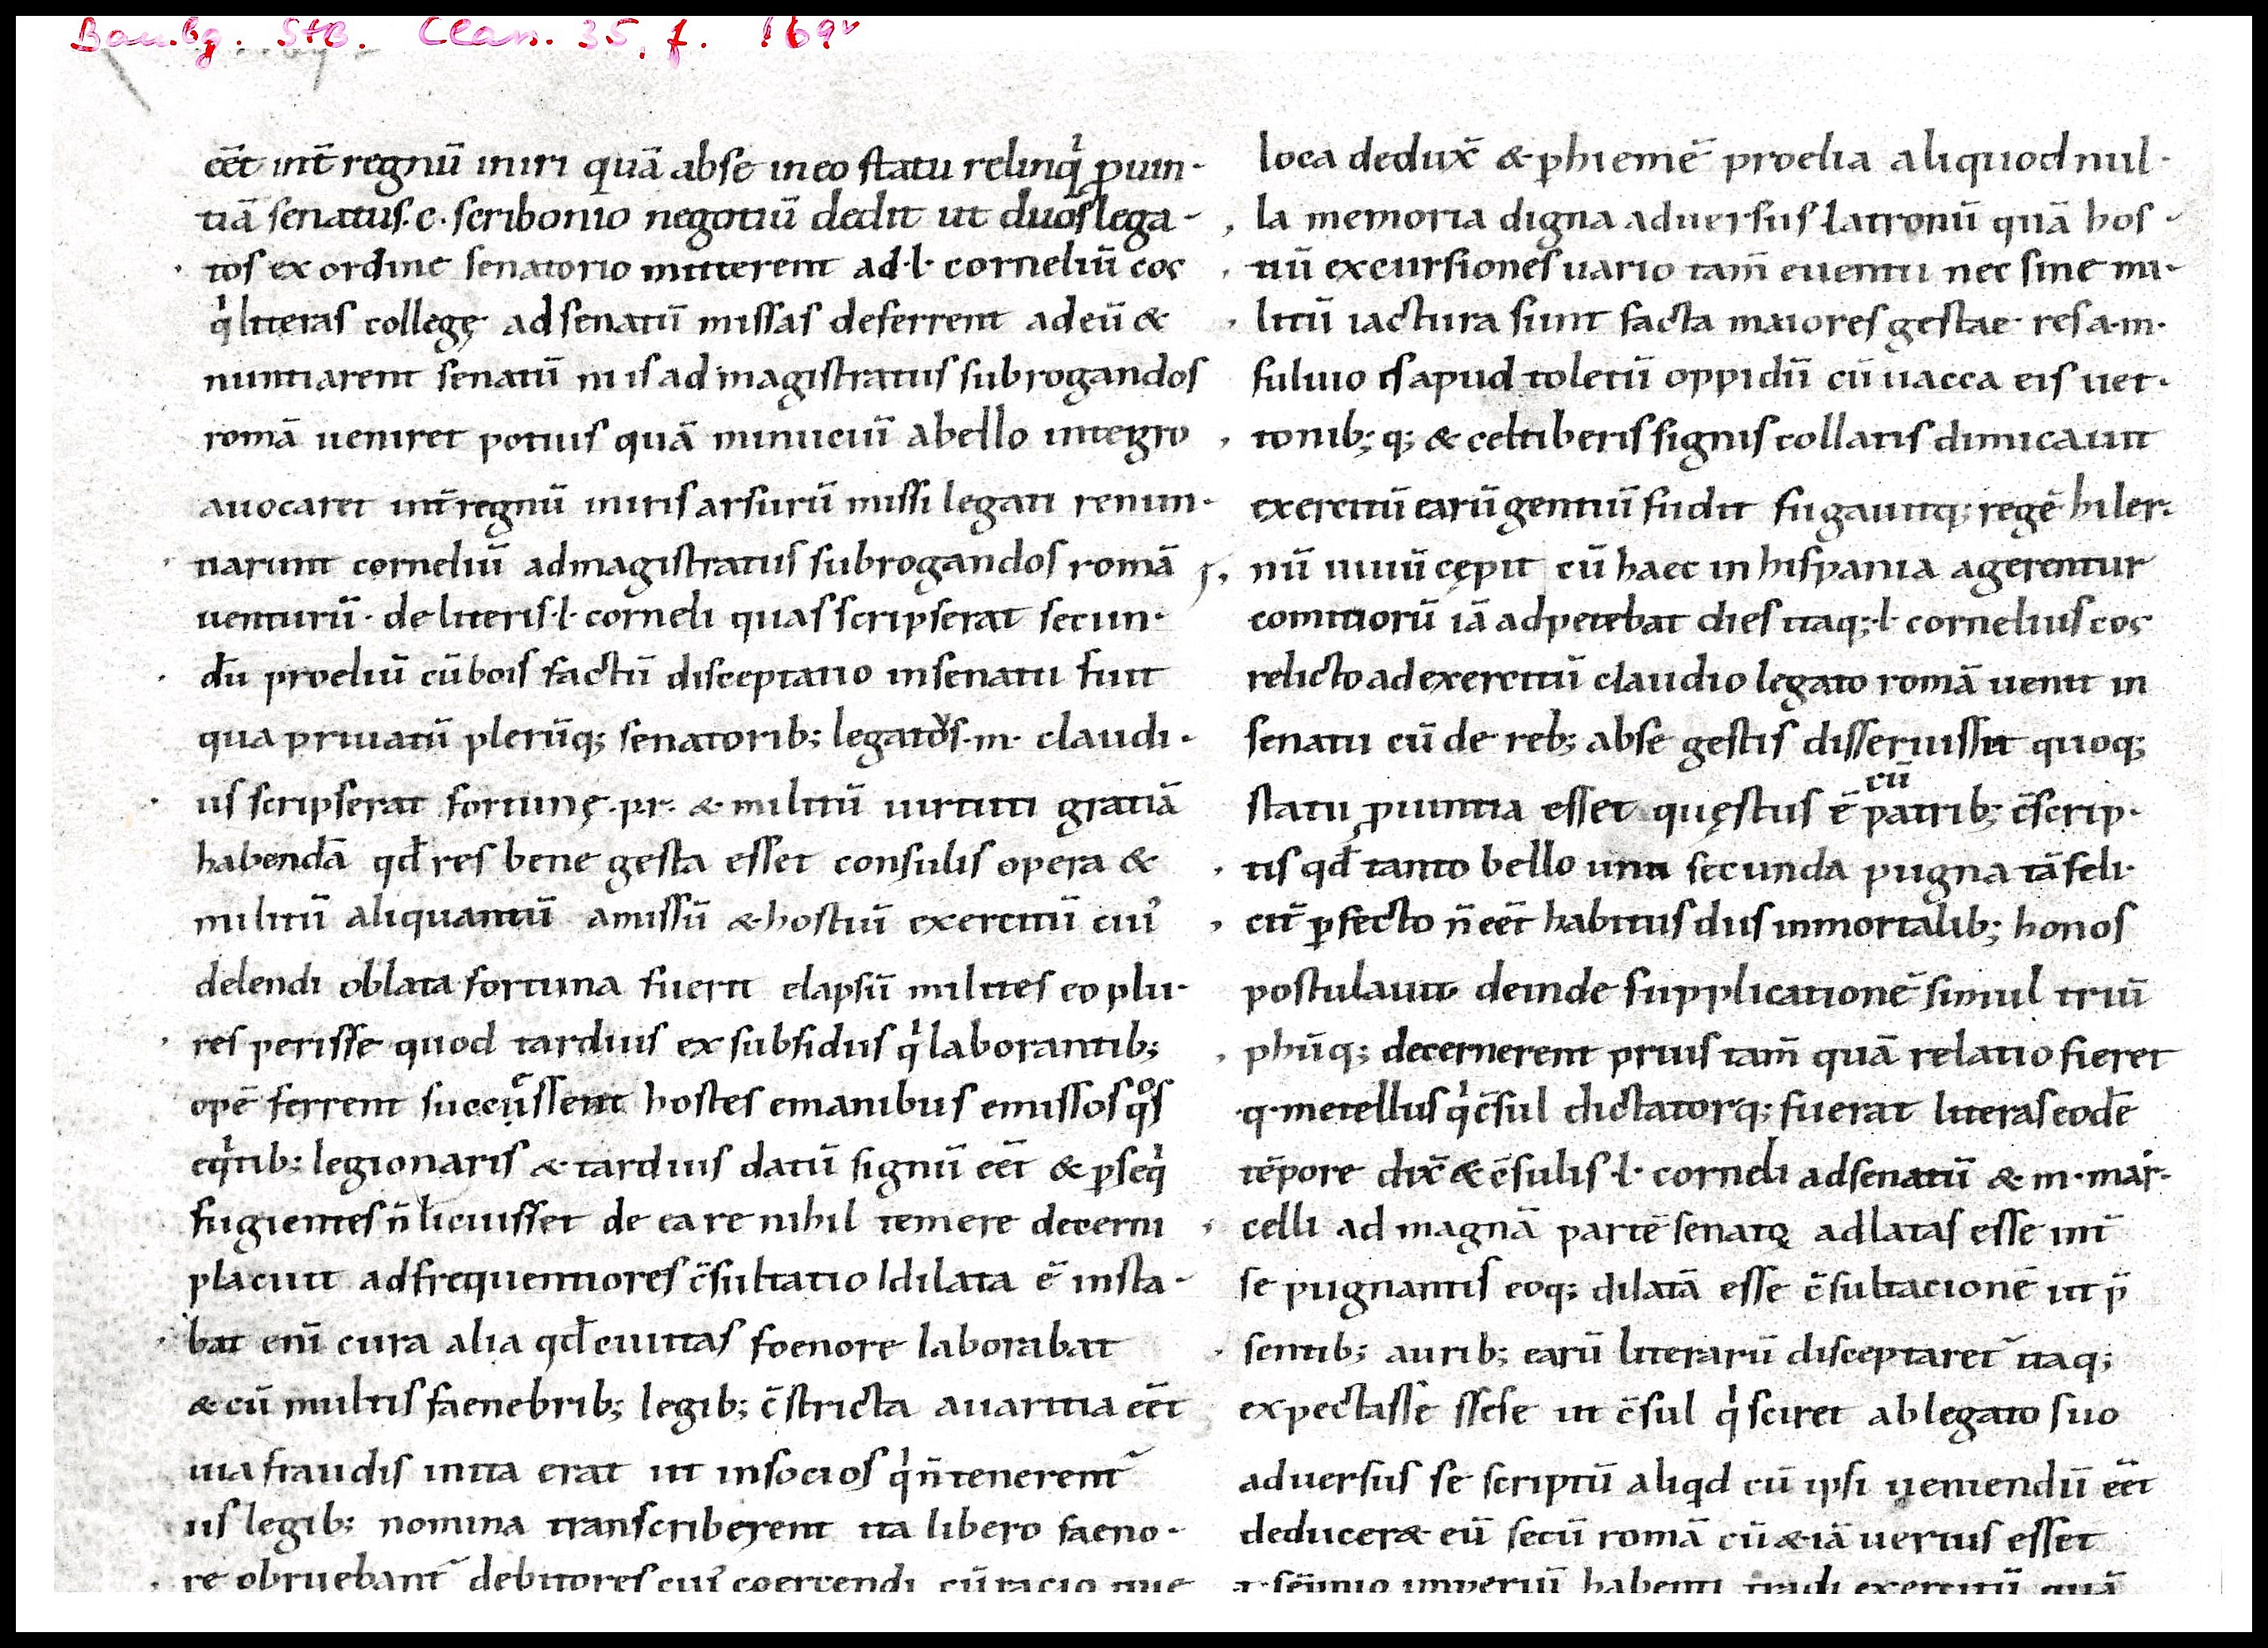 Bambg. StB. Clas. 35, f. 169v
eēt int̄regnū iniri quā abse in eo statu relinqͥ ꝓuin-
tiā senatus. c. scribonio negotiū dedit ut duos lega-
tos ex ordine senatorio mitterent ad.l. corneliū cos
qͥ literas collegę ad senatū missas deferrent ad eū &
nuntiarent senatū ni is ad magistratus subrogandos
romā ueniret potius quā minuciū abello integro
auocaret int̄regnū iniris arsurū missi legati renun-
narunt corneliū admagistratus subrogandos romā
uenturū. de literis.l. corneli quas scripserat secun-
dū proeliū cū bois factū disceptatio insenatu fuit
qua priuatū plerūq; senatorib; legatos.m. claudi-
us scripserat fortunę.pr. & militū uirtuti gratiā
habendā qđ res bene gesta esset consulis opera &
militū aliquantū amissū & hostiū exercitū cuiꝰ
delendi oblata fortuna fuerit elapsū milites eo plu-
res perisse quod tardius ex subsidiis qͥ laborantib;
opē ferrent succu̅ssent hostes emanibus emissos qͦs
eqͥtib; legionaris & tardius datū signū eēt & ꝑseqͥ
fugientes n̄ licuisset de ea re nihil temere decerni
placuit adfrequentiores c̄sultatio ldilata ē insta-
bat enī cura alia qđ ciuitas foenore laborabat
& cū multis faenebrib; legib; c̄stricta auaritia eēt
uia fraudis inita erat ut insocios qͥ n̄ tenerent̄
iis legib; nomina transcriberent ita libero faeno-
re obruebant̄ debitores cuiꝰ coercendi cū racio que
loca dedux̄ & ꝑhiemē proelia aliquod nul-
la memoria digna aduersus latronū quā hos-
tiū excursiones uario tam̄ euentu nec sine mi-
litū iactura sunt facta maiores gestae res a.m.
fuluio is apud toletū oppidū cū uacca eis uet-
tonib; q; & celtiberis signis collatis dimicauit
exercitū earū gentiū fudit fugauitq; regē hiler-
nū uiuū cępit cū haec in hispania agerentur
comitiorū iā adpetebat dies itaq;.l. cornelius cos
relicto ad exercitū claudio legato romā uenit in
senatu cū de reb; abse gestis disseruissit quoq;
statu ꝓuintia esset quęstus ē cū patrib; c̄scrip-
tis qđ tanto bello una secunda pugna tā feli-
cit̄ ꝑfecto n̄ eēt habitus diis inmortalib; honos
postulauit deinde supplicationē simul triū
phūq; decernerent prius tam̄ quā relatio fieret
.q. metellus qͥ c̄sul dictatorq; fuerat literas eodē
tēpore dix̄ & c̄sulis.l. corneli adsenatū & m. mar-
celli ad magnā partē senatꝰ adlatas esse int̄
se pugnantis eoq; dilatā esse c̄sultacionē ut p̄
sentib; aurib; earū literarū disceptaret̄ itaq;
expectasse ssese ut c̄sul qͥ sciret ab legato suo
aduersus se scriptū aliqd cū ipsi ueniendū eēt
deducer& eū secū romā cū & iā uerius esset
t. sēpnio imperiū habenti tradi exercitū quā